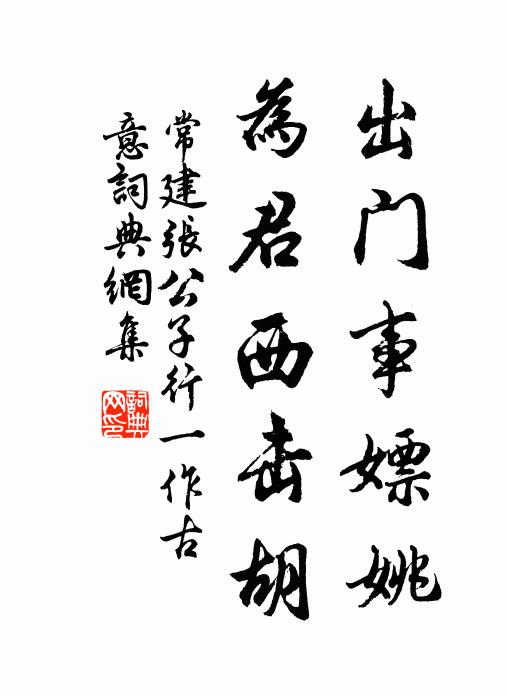 出门事嫖姚
為君西击胡
常建張公子行一作古
意詞典網集
詞典
网印